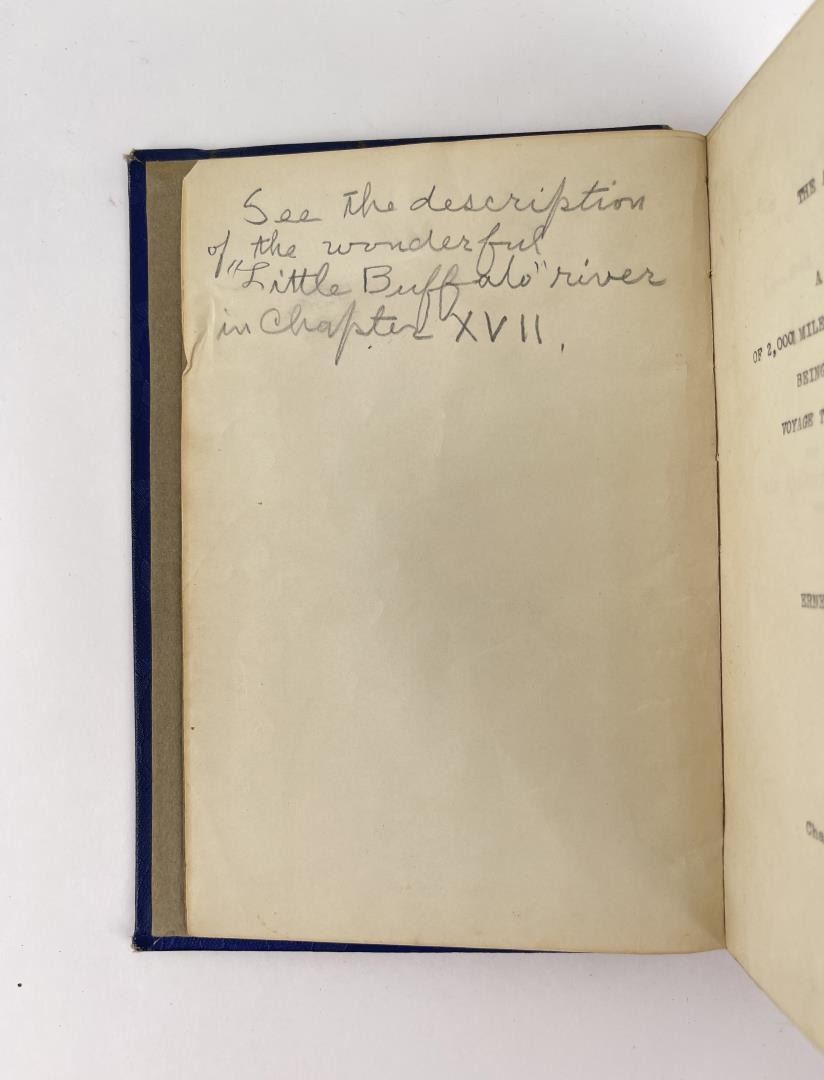 See the description
of the wonderful
"Little Buffalo" river
in Chapter XVII.
THE
A
OF 2,000 MILE
BEING
VOYAGE T
ERNE
Cha